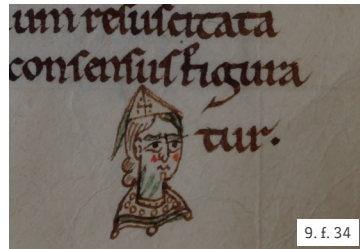 um resuscitata
consensus figura
tur.
9. f. 34